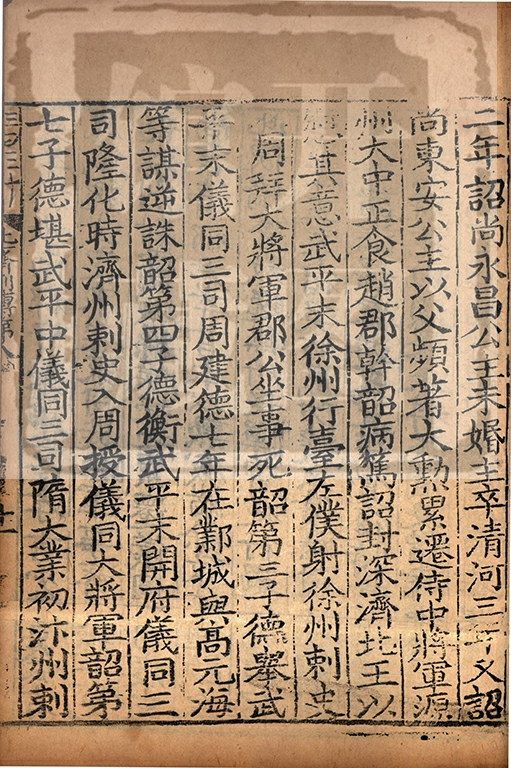 二年詔尚永昌公主未婚主卒清河三年又詔
尚東安公主以父頻著大勲累遷侍中將軍源
州大中正食趙郡幹韶病篤詔封深濟北王以
慰其意武平末徐州行臺左僕射徐州刺史
周拜大將軍郡公坐事死韶第三子德舉武
平末儀同三司周建德七年在鄴城與高元海
等謀逆誅韶第四子德衡武平末開府儀同三
司隆化時濟州刺史入周授儀同大將軍韶第
七子德堪武平中儀同三司隋大業初汴州刺